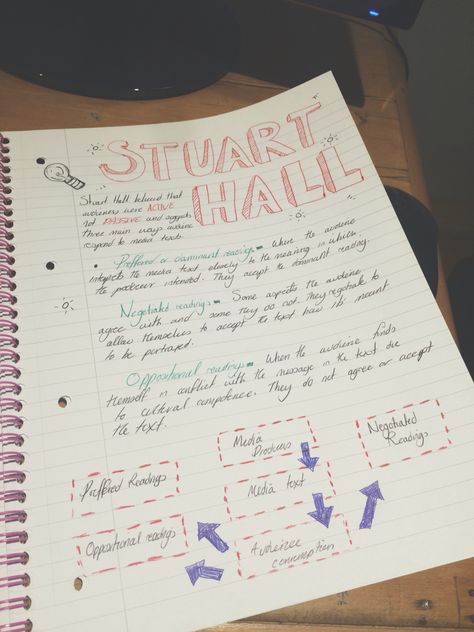 STUART
HALL
Stuart Hall believed that
audiences were ACTIVE
not PASSIVE and suggests
three main ways audience
respond to media texts.
• Preffered or dominant readings - When the audience
interprets the media text closely to the meaning in which
the producer intended. They accept the dominant reading.
Negotiated readings - Some aspects the audience
agree with and some they do not. They negotiate to
allow themselves to accept the text how its meant
to be portrayed.
Oppositional readings - When the audience finds
themself in conflict with the message in the text due
to cultural competence. They do not agree or accept
the text.
Media
Producers
Negotiated
Readings
Preffered Readings
Media text
Oppositional readings
Audience
consumption